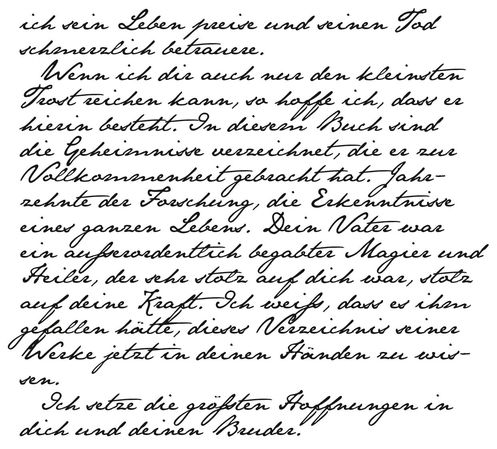 ich sein Leben preise und seinen Tod
schmerzlich betrauere.
Wenn ich dir auch nur den kleinsten
Trost reichen kann, so hoffe ich, dass er
hierin besteht. In diesem Buch sind
die Geheimnisse verzeichnet, die er zur
Vollkommenheit gebracht hat. Jahr-
zehnte der Forschung, die Erkenntnisse
eines ganzen Lebens. Dein Vater war
ein außerordentlich begabter Magier und
Heiler, der sehr stolz auf dich war, stolz
auf deine Kraft. Ich weiß, dass es ihm
gefallen hätte, dieses Verzeichnis seiner
Werke jetzt in deinen Händen zu wis-
sen.
Ich setze die größten Hoffnungen in
dich und deinen Bruder.